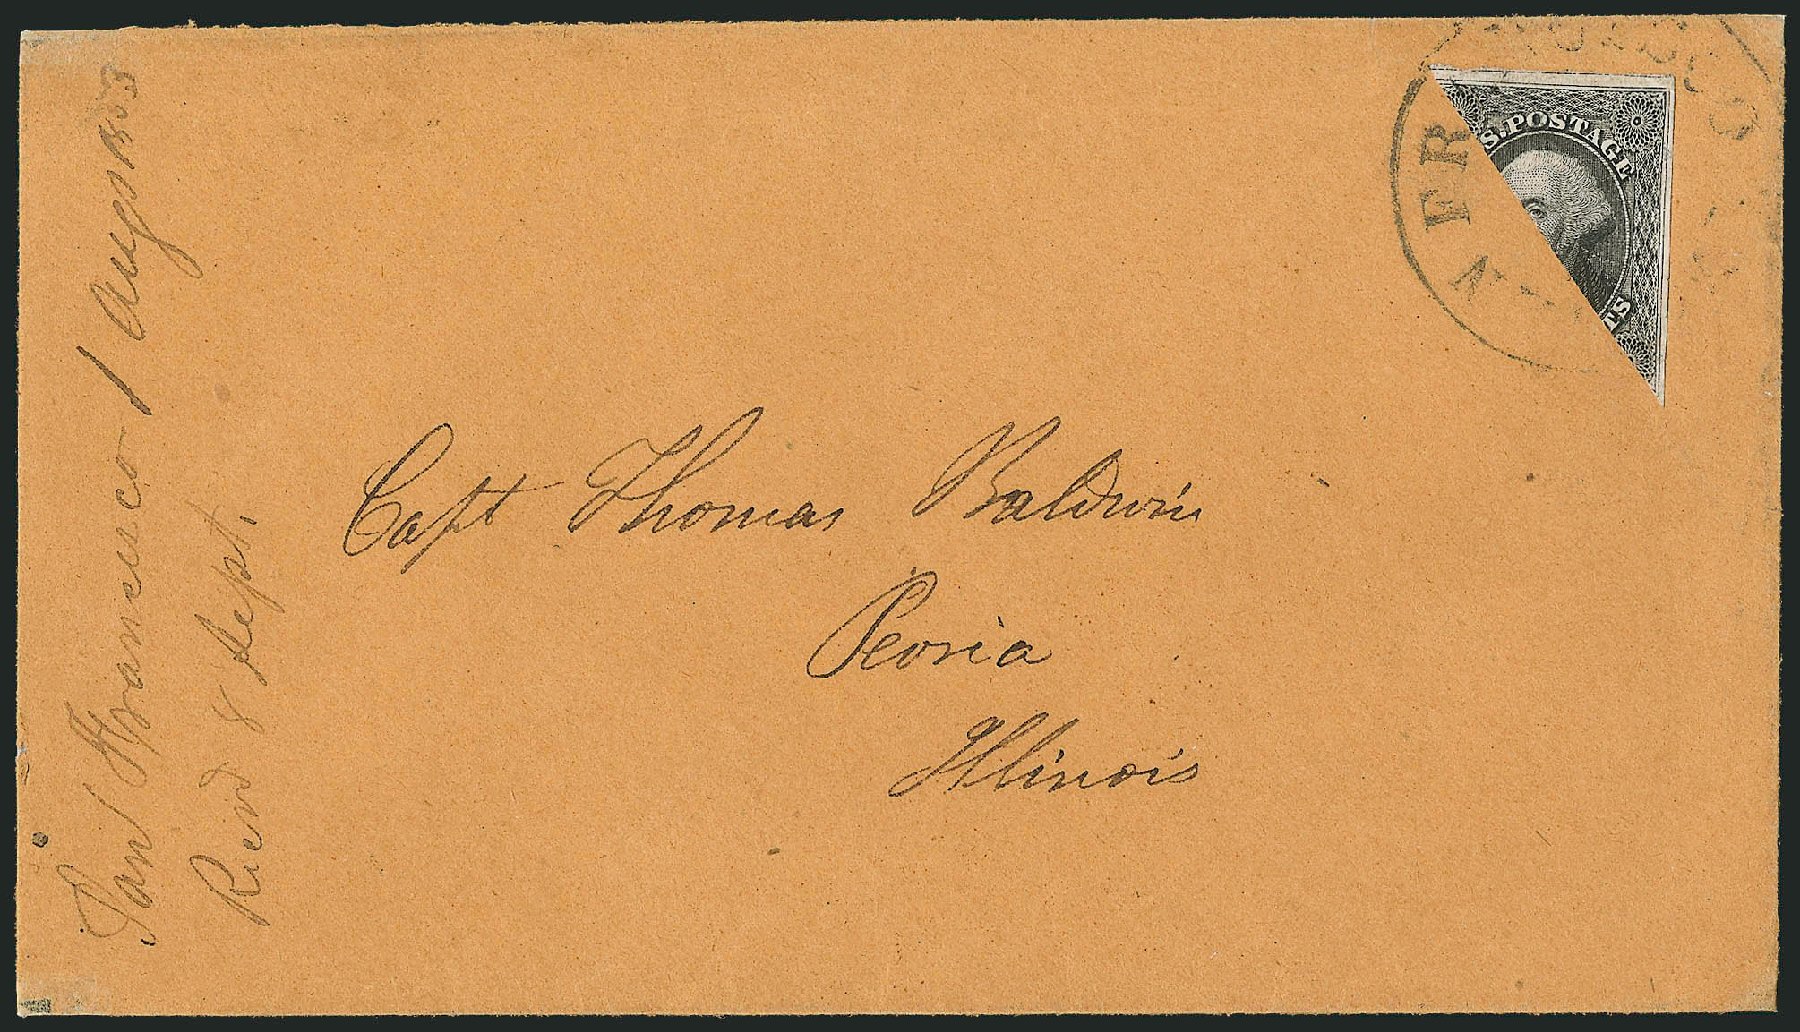 San Francisco 1 Augs 1853
Recivd 8 Sept.
S. POSTAGE
TS
Capt Thomas Baldwin
Peoria
Illinois